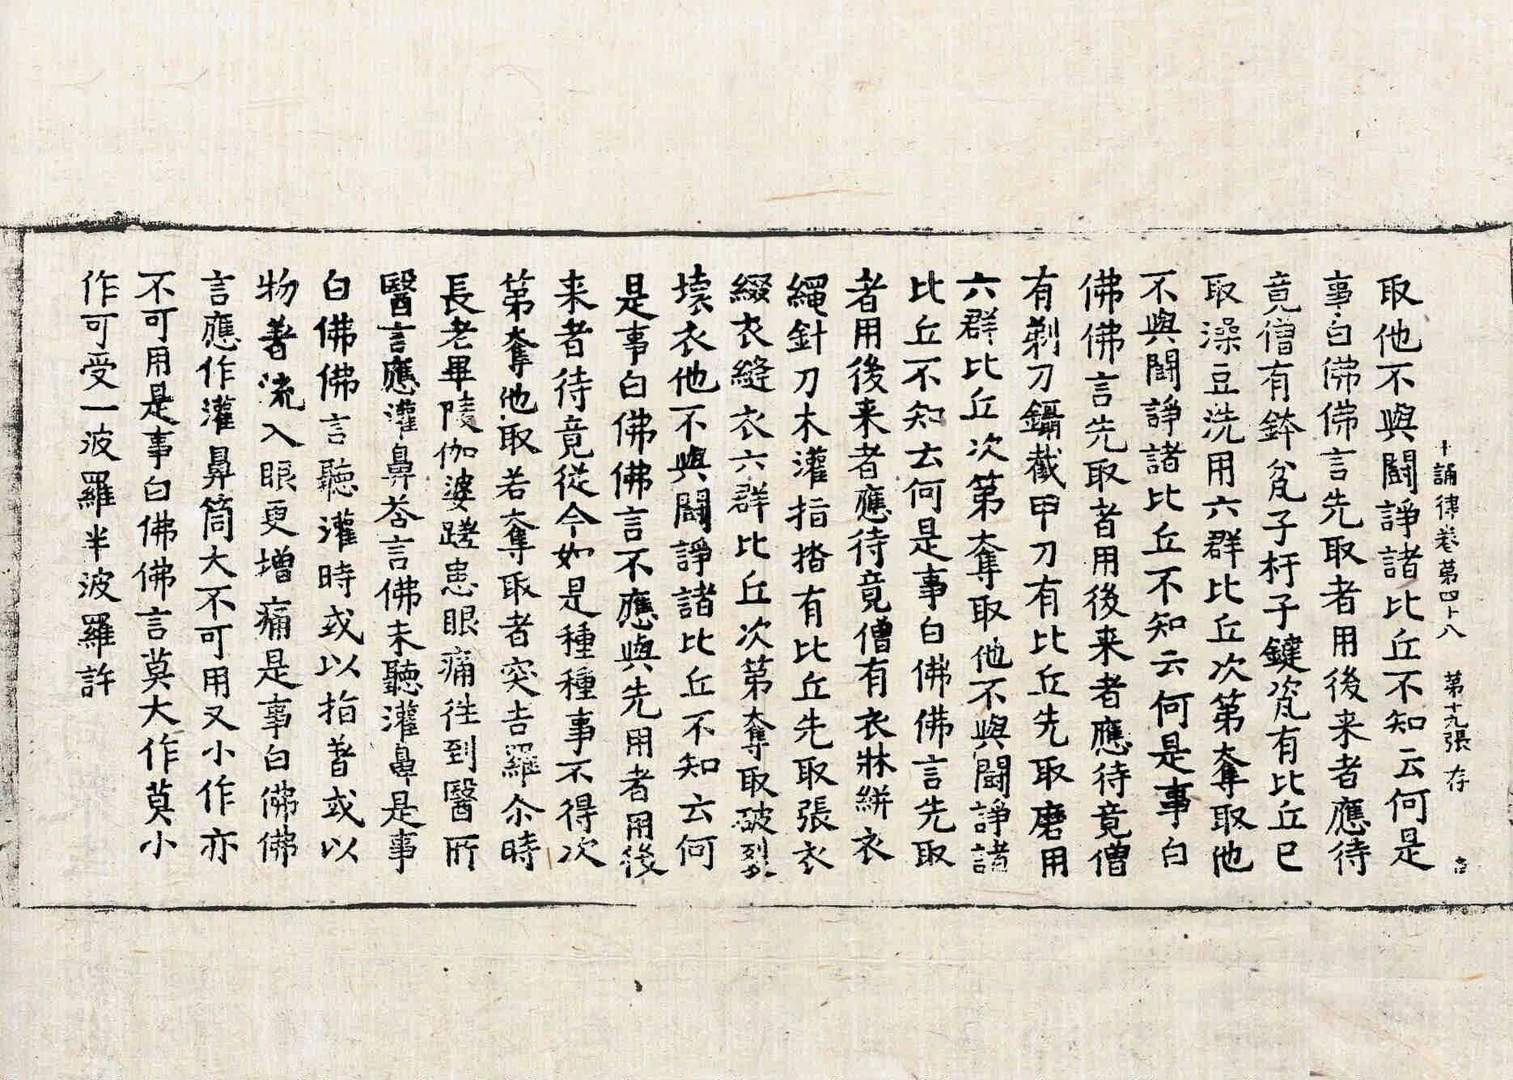 十誦律卷第四十八 第十九張 存
取他不與鬪諍諸比丘不知云何是
事白佛佛言先取者用後来者應待
竟僧有鉢瓫子杅子鍵瓷有比丘已
取澡豆洗用六群比丘次第奪取他
不與鬪諍諸比丘不知云何是事白
佛佛言先取者用後来者應待竟僧
有剃刀鑷截甲刀有比丘先取磨用
六群比丘次第奪取他不與鬪諍諸
比丘不知云何是事白佛佛言先取
者用後来者應待竟僧有衣牀絣衣
繩針刀木灌指揩有比丘先取張衣
綴衣縫衣六群比丘次第奪取破裂
壊衣他不與鬪諍諸比丘不知云何
是事白佛佛言不應與先用者用後
来者待竟從今如是種種事不得次
第奪他取若奪取者突吉羅尒時
長老畢陵伽婆蹉患眼痛往到醫所
醫言應灌鼻荅言佛未聽灌鼻是事
白佛佛言聽灌灌時或以指著或以
物著流入眼更增痛是事白佛佛
言應作灌鼻筒大不可用又小作亦
不可用是事白佛佛言莫大作莫小
作可受一波羅半波羅許